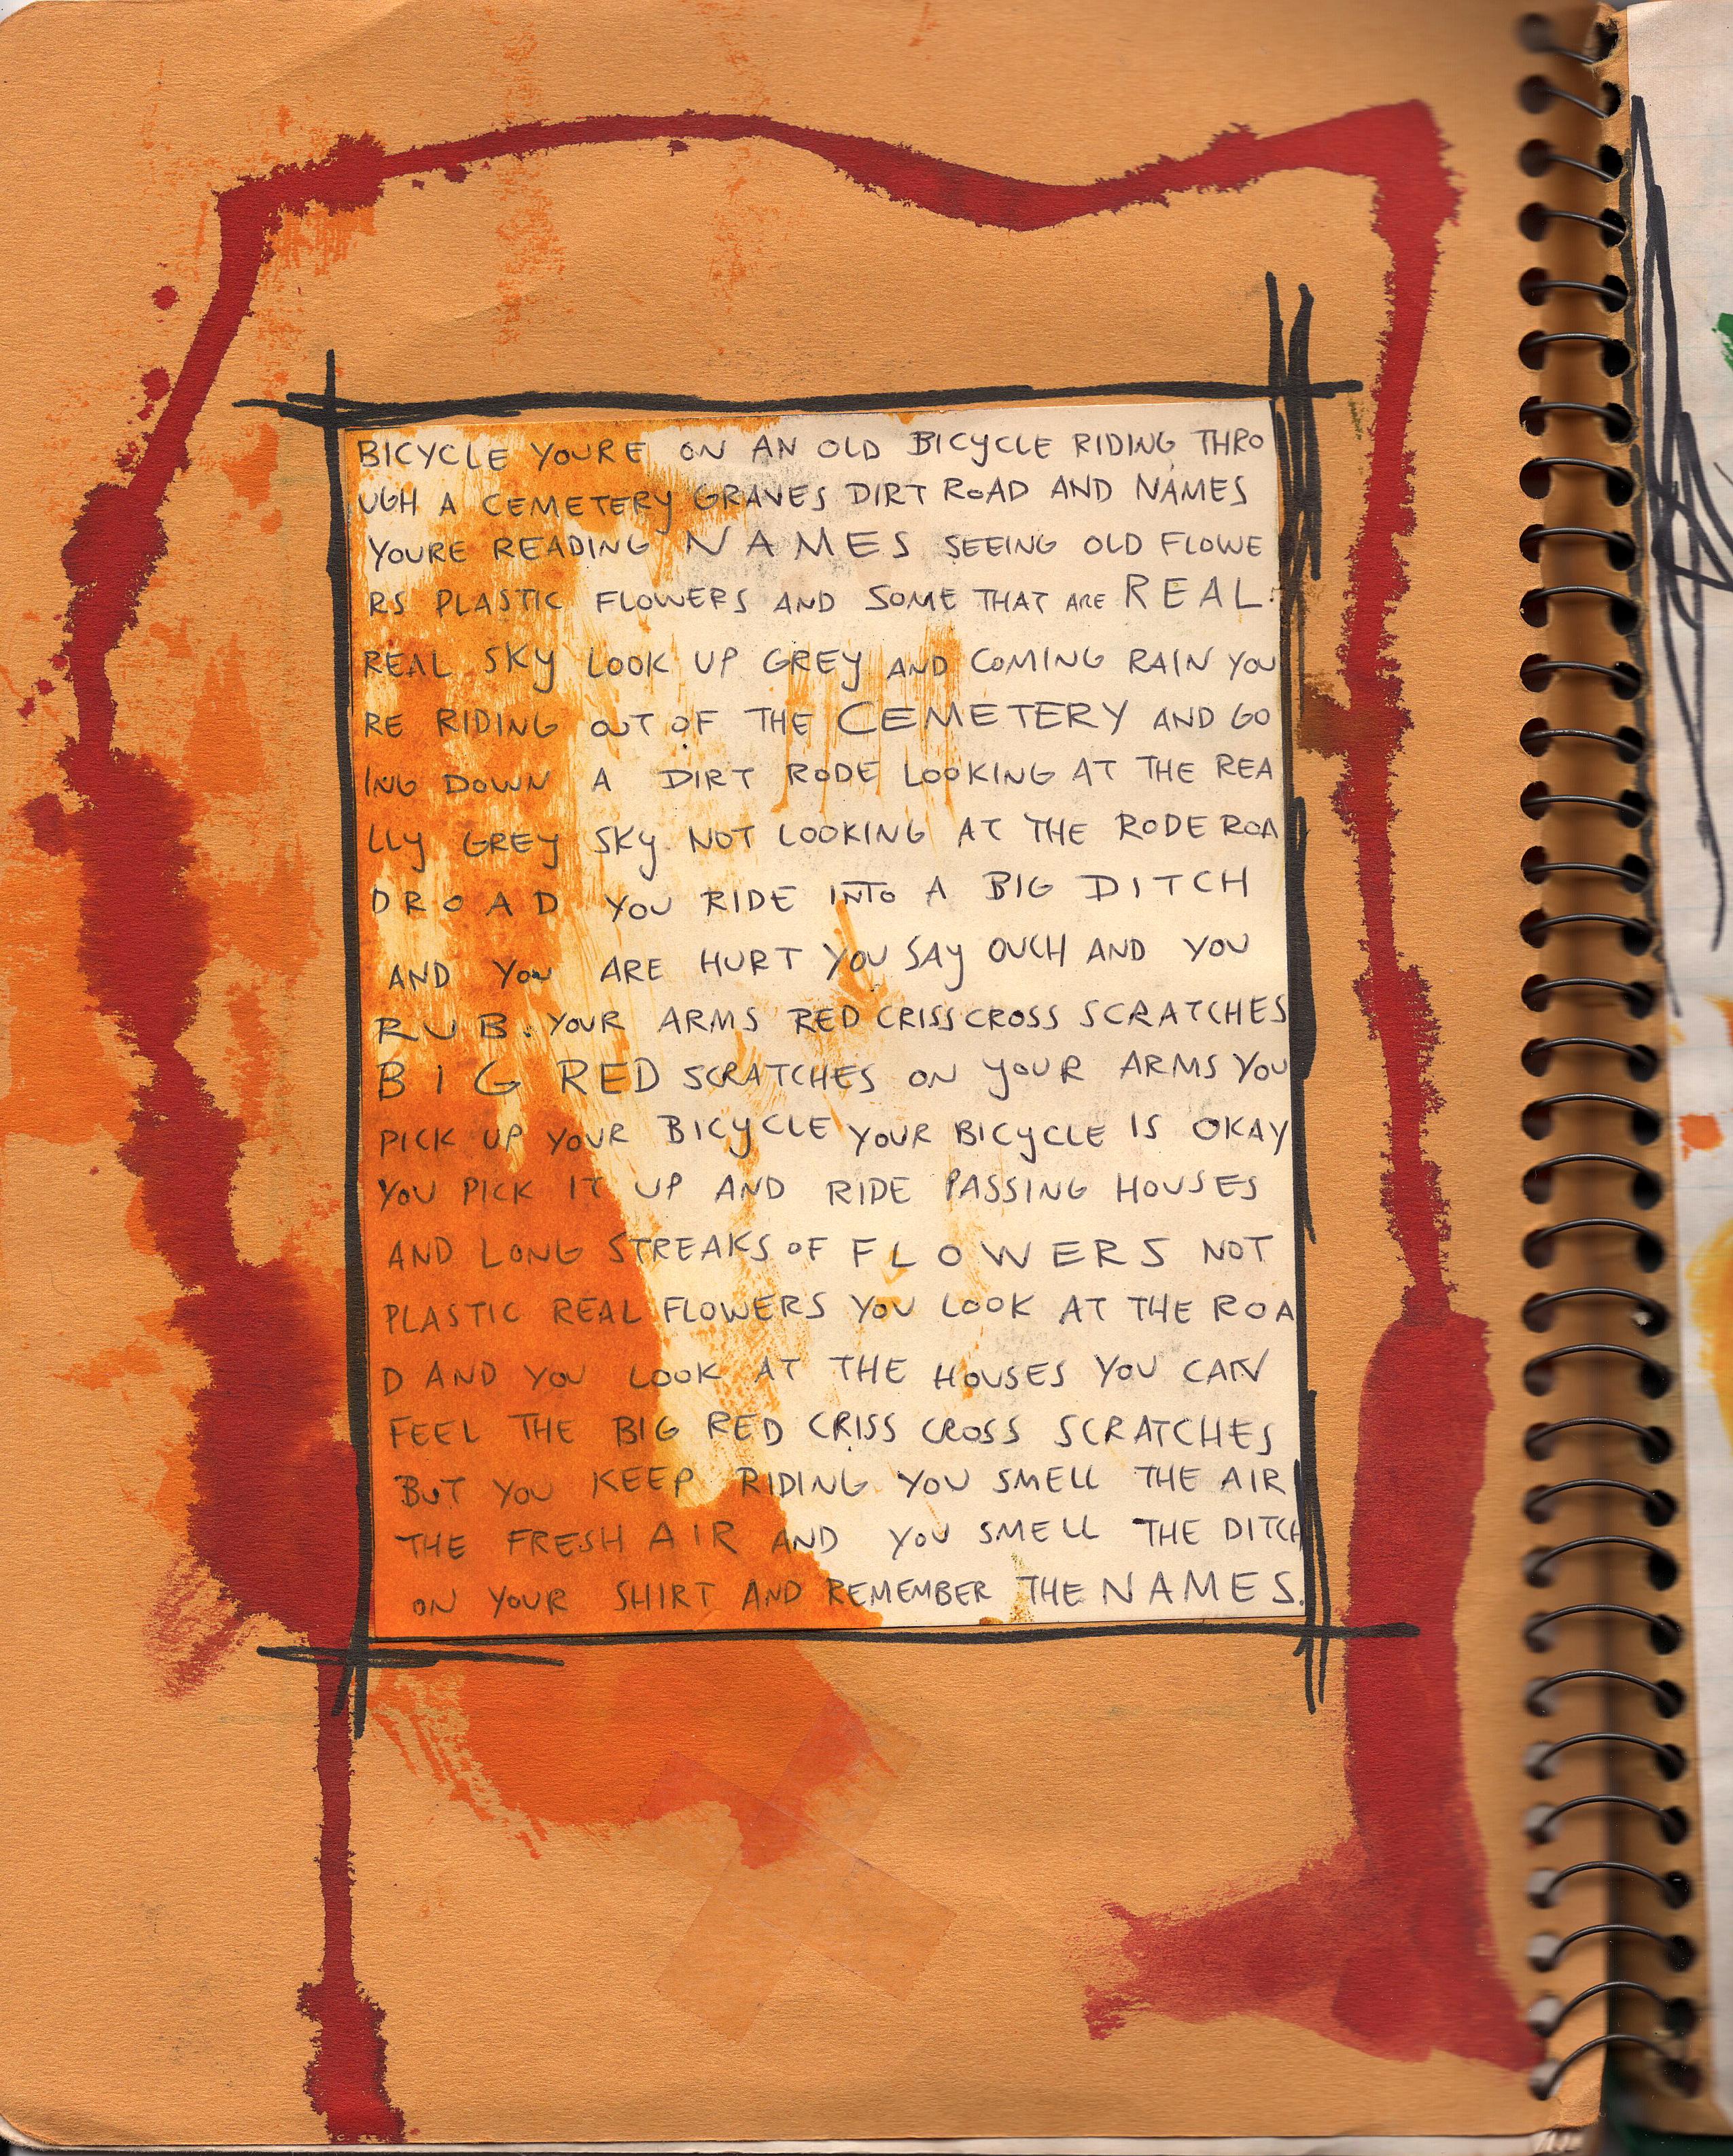 BICYCLE YOURE ON AN OLD BICYCLE RIDING THRO
UGH A CEMETERY GRAVES DIRT ROAD AND NAMES
YOURE READING NAMES SEEING OLD FLOWE
RS PLASTIC FLOWERS AND SOME THAT ARE REAL.
REAL SKY LOOK UP GREY AND COMING RAIN YOU
RE RIDING OUT OF THE CEMETERY AND GO
ING DOWN A DIRT RODE LOOKING AT THE REA
LLY GREY SKY NOT LOOKING AT THE RODE ROA
D ROAD YOU RIDE INTO A BIG DITCH
AND YOU ARE HURT YOU SAY OUCH AND YOU
RUB. YOUR ARMS RED CRISSCROSS SCRATCHES
BIG RED SCRATCHES ON YOUR ARMS YOU
PICK UP YOUR BICYCLE YOUR BICYCLE IS OKAY
YOU PICK IT UP AND RIDE PASSING HOUSES
AND LONG STREAKS OF FLOWERS NOT
PLASTIC REAL FLOWERS YOU LOOK AT THE ROA
D AND YOU LOOK AT THE HOUSES YOU CAN
FEEL THE BIG RED CRISS CROSS SCRATCHES
BUT YOU KEEP RIDING YOU SMELL THE AIR
THE FRESH AIR AND YOU SMELL THE DITCH
ON YOUR SHIRT AND REMEMBER THE NAMES.